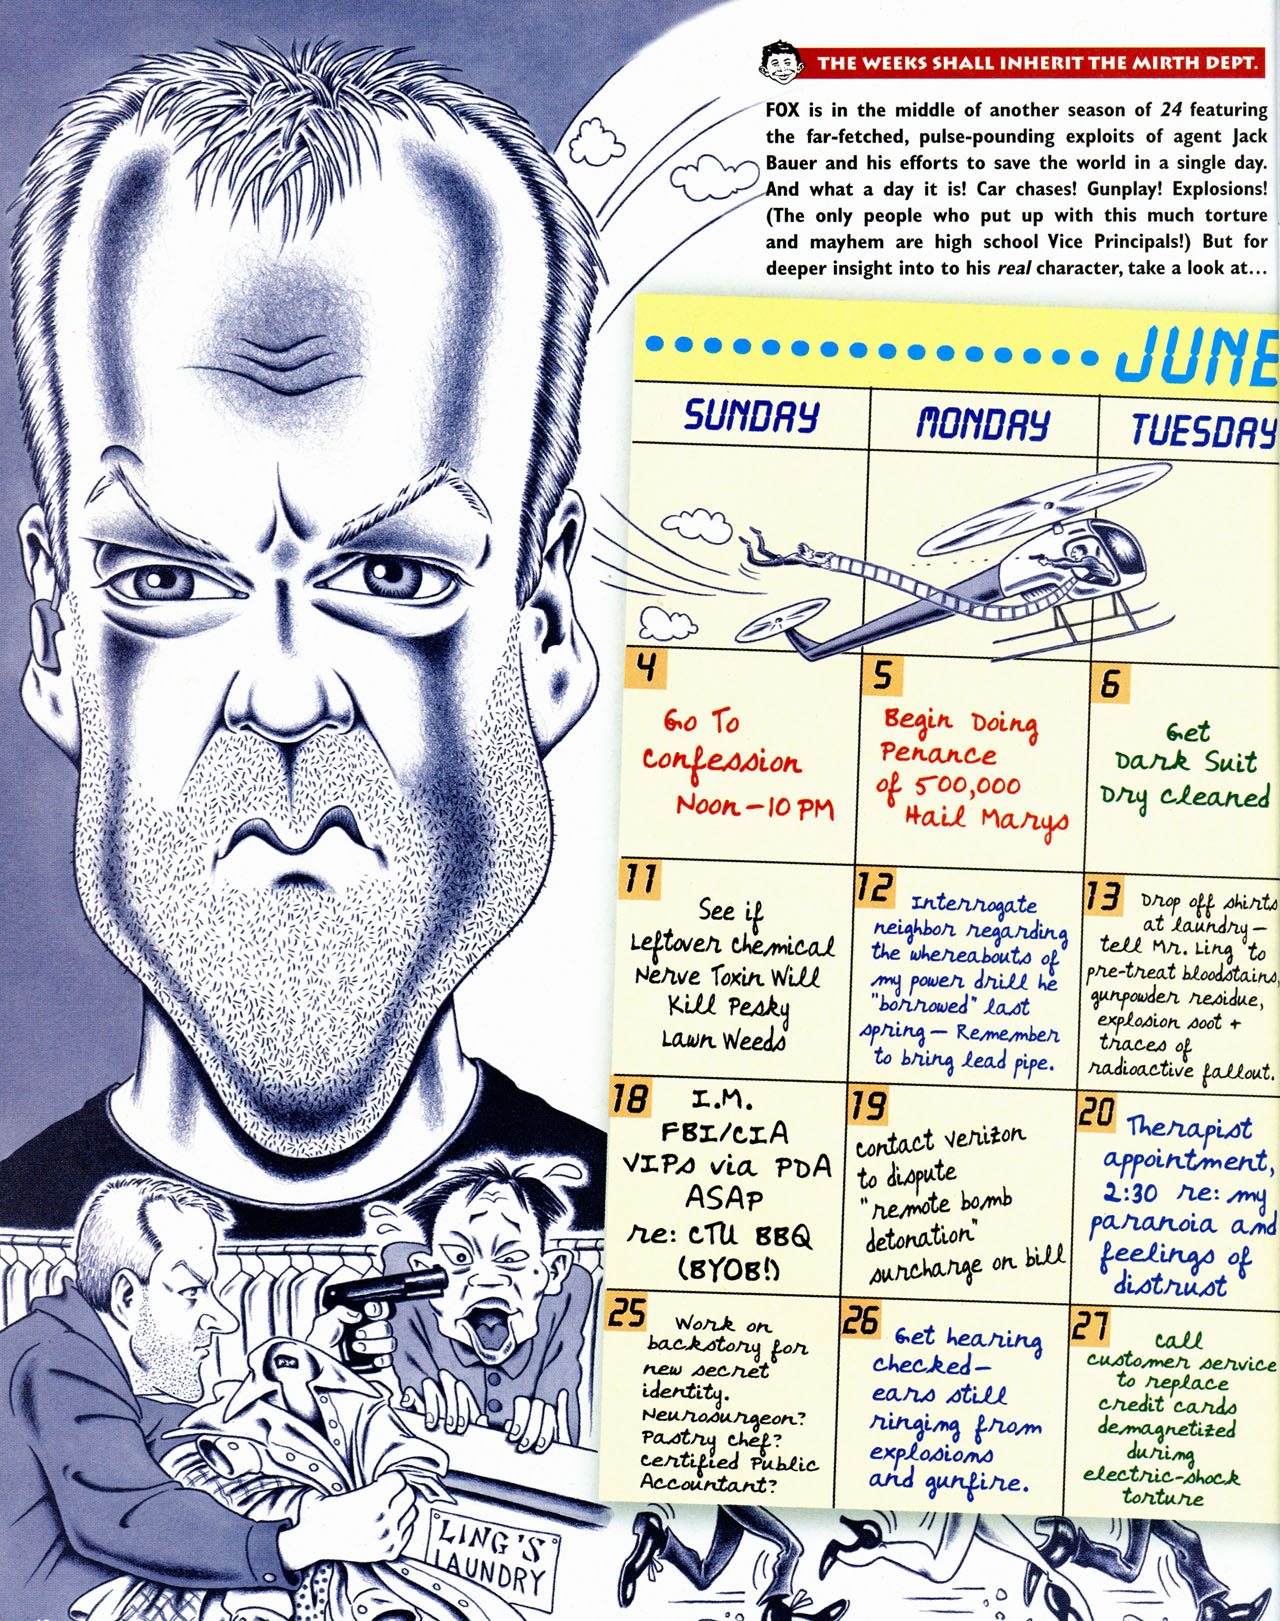 THE WEEKS SHALL INHERIT THE MIRTH DEPT.
FOX is in the middle of another season of 24 featuring
the far-fetched, pulse-pounding exploits of agent Jack
Bauer and his efforts to save the world in a single day.
And what a day it is! Car chases! Gunplay! Explosions!
(The only people who put up with this much torture
and mayhem are high school Vice Principals!) But for
deeper insight into to his real character, take a look at…
JUNE
SUNDAY
MONDAY
TUESDAY
4
Go To
Confession
Noon – 10 PM
5
Begin Doing
Penance
of 500,000
Hail Marys
6
Get
Dark Suit
Dry Cleaned
11
See if
Leftover Chemical
Nerve Toxin Will
Kill Pesky
Lawn Weeds
12
Interrogate
neighbor regarding
the whereabouts of
my power drill he
"borrowed" last
spring — Remember
to bring lead pipe.
13
Drop off shirts
at laundry —
tell Mr. Ling to
pre-treat bloodstains,
gunpowder residue,
explosion soot +
traces of
radioactive fallout.
18
I.M.
FBI/CIA
VIPs via PDA
ASAP
re: CTU BBQ
(BYOB!)
19
Contact Verizon
to dispute
"remote bomb
detonation"
surcharge on bill
20
Therapist
appointment,
2:30 re: my
paranoia and
feelings of
distrust
25
Work on
backstory for
new secret
identity.
Neurosurgeon?
Pastry Chef?
Certified Public
Accountant?
26
Get hearing
checked —
ears still
ringing from
explosions
and gunfire.
27
Call
customer service
to replace
credit cards
demagnetized
during
electric-shock
torture
LING'S
LAUNDRY